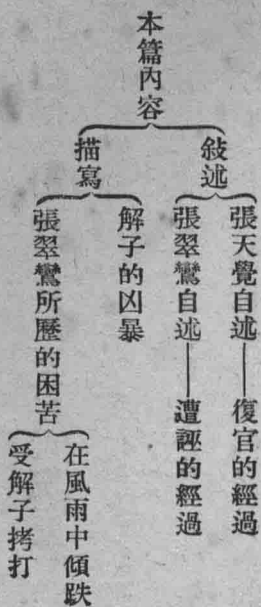 本篇內容
敍述
張天覺自述——復官的經過
張翠鸞自述——遭誣的經過
描寫
解子的凶暴
張翠鸞所歷的困苦
在風雨中傾跌
受解子拷打